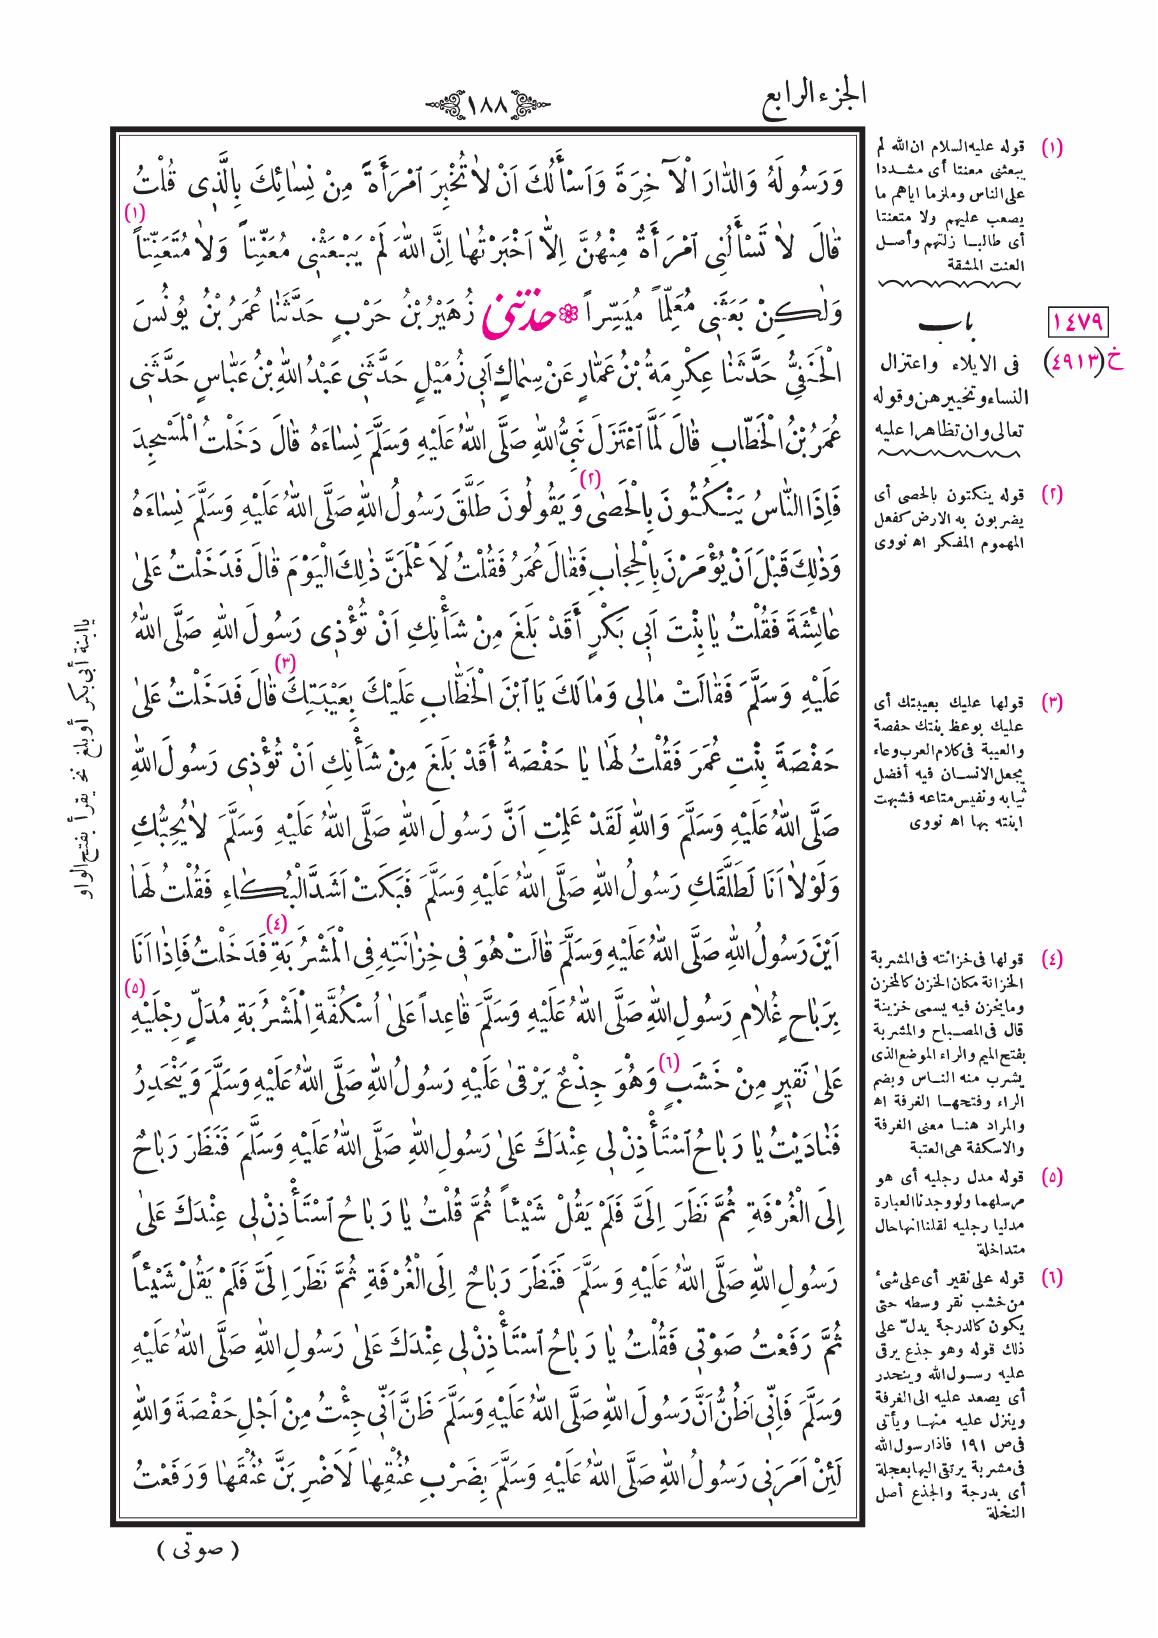 الجزء الرابع
١٨٨
وَرَسُولَهُ وَالدَّارَ الْآخِرَةَ وَاَسْأَلُكَ اَنْ لَا تُخْبِرَ امْرَأَةً مِنْ نِسَائِكَ بِالَّذِى قُلْتُ
قَالَ لَا تَسْأَلُنِى امْرَأَةٌ مِنْهُنَّ اِلَّا اَخْبَرْتُهَا اِنَّ اللهَ لَمْ يَبْعَثْنِى مُعَنِّتاً وَلَا مُتَعَنِّتاً (١)
وَلٰكِنْ بَعَثَنِى مُعَلِّماً مُيَسِّراً ❀ حَدَّثَنِى زُهَيْرُ بْنُ حَرْبٍ حَدَّثَنَا عُمَرُ بْنُ يُونُسَ
الْحَنَفِىُّ حَدَّثَنَا عِكْرِمَةُ بْنُ عَمَّارٍ عَنْ سِمَاكٍ اَبِى زُمَيْلٍ حَدَّثَنِى عَبْدُ اللهِ بْنُ عَبَّاسٍ حَدَّثَنِى
عُمَرُ بْنُ الْخَطَّابِ قَالَ لَمَّا اعْتَزَلَ نَبِىُّ اللهِ صَلَّى اللهُ عَلَيْهِ وَسَلَّمَ نِسَاءَهُ قَالَ دَخَلْتُ الْمَسْجِدَ
فَاِذَا النَّاسُ يَنْكُتُونَ بِالْحَصٰى (٢) وَيَقُولُونَ طَلَّقَ رَسُولُ اللهِ صَلَّى اللهُ عَلَيْهِ وَسَلَّمَ نِسَاءَهُ
وَذٰلِكَ قَبْلَ اَنْ يُؤْمَرْنَ بِالْحِجَابِ فَقَالَ عُمَرُ فَقُلْتُ لَاَعْلَمَنَّ ذٰلِكَ الْيَوْمَ قَالَ فَدَخَلْتُ عَلٰى
عَائِشَةَ فَقُلْتُ يَا بِنْتَ اَبِى بَكْرٍ أَقَدْ بَلَغَ مِنْ شَأْنِكِ اَنْ تُؤْذِى رَسُولَ اللهِ صَلَّى اللهُ
عَلَيْهِ وَسَلَّمَ فَقَالَتْ مَالِى وَمَالَكَ يَا ابْنَ الْخَطَّابِ عَلَيْكَ بِعَيْبَتِكَ (٣) قَالَ فَدَخَلْتُ عَلٰى
حَفْصَةَ بِنْتِ عُمَرَ فَقُلْتُ لَهَا يَا حَفْصَةُ أَقَدْ بَلَغَ مِنْ شَأْنِكِ اَنْ تُؤْذِى رَسُولَ اللهِ
صَلَّى اللهُ عَلَيْهِ وَسَلَّمَ وَاللهِ لَقَدْ عَلِمْتِ اَنَّ رَسُولَ اللهِ صَلَّى اللهُ عَلَيْهِ وَسَلَّمَ لَا يُحِبُّكِ
وَلَوْلَا اَنَا لَطَلَّقَكِ رَسُولُ اللهِ صَلَّى اللهُ عَلَيْهِ وَسَلَّمَ فَبَكَتْ اَشَدَّ الْبُكَاءِ فَقُلْتُ لَهَا
اَيْنَ رَسُولُ اللهِ صَلَّى اللهُ عَلَيْهِ وَسَلَّمَ قَالَتْ هُوَ فِى خِزَانَتِهِ فِى الْمَشْرُبَةِ (٤) فَدَخَلْتُ فَاِذَا اَنَا
بِرَبَاحٍ غُلَامِ رَسُولِ اللهِ صَلَّى اللهُ عَلَيْهِ وَسَلَّمَ قَاعِداً عَلٰى اُسْكُفَّةِ الْمَشْرُبَةِ مُدَلٍّ رِجْلَيْهِ (٥)
عَلٰى نَقِيرٍ مِنْ خَشَبٍ (٦) وَهُوَ جِذْعٌ يَرْقٰى عَلَيْهِ رَسُولُ اللهِ صَلَّى اللهُ عَلَيْهِ وَسَلَّمَ وَيَنْحَدِرُ
فَنَادَيْتُ يَا رَبَاحُ اسْتَأْذِنْ لِى عِنْدَكَ عَلٰى رَسُولِ اللهِ صَلَّى اللهُ عَلَيْهِ وَسَلَّمَ فَنَظَرَ رَبَاحٌ
اِلَى الْغُرْفَةِ ثُمَّ نَظَرَ اِلَىَّ فَلَمْ يَقُلْ شَيْئاً ثُمَّ قُلْتُ يَا رَبَاحُ اسْتَأْذِنْ لِى عِنْدَكَ عَلٰى
رَسُولِ اللهِ صَلَّى اللهُ عَلَيْهِ وَسَلَّمَ فَنَظَرَ رَبَاحٌ اِلَى الْغُرْفَةِ ثُمَّ نَظَرَ اِلَىَّ فَلَمْ يَقُلْ شَيْئاً
ثُمَّ رَفَعْتُ صَوْتِى فَقُلْتُ يَا رَبَاحُ اسْتَأْذِنْ لِى عِنْدَكَ عَلٰى رَسُولِ اللهِ صَلَّى اللهُ عَلَيْهِ
وَسَلَّمَ فَاِنِّى اَظُنُّ اَنَّ رَسُولَ اللهِ صَلَّى اللهُ عَلَيْهِ وَسَلَّمَ ظَنَّ اَنِّى جِئْتُ مِنْ اَجْلِ حَفْصَةَ وَاللهِ
لَئِنْ اَمَرَنِى رَسُولُ اللهِ صَلَّى اللهُ عَلَيْهِ وَسَلَّمَ بِضَرْبِ عُنُقِهَا لَاَضْرِبَنَّ عُنُقَهَا وَرَفَعْتُ
( صوتى )
(١) قوله عليه السلام ان الله لم
يبعثنى معنتا أى مشددا
على الناس وملزما اياهم ما
يصعب عليهم ولا متعنتا
أى طالبا زلتهم وأصل
العنت المشقة
١٤٧٩
باب
خ (٤٩١٣)
فى الايلاء واعتزال
النساء وتخييرهن وقوله
تعالى وان تظاهرا عليه
(٢) قوله ينكتون بالحصى أى
يضربون به الارض كفعل
المهموم المفكر اه نووى
(٣) قولها عليك بعيبتك أى
عليك بوعظ بنتك حفصة
والعيبة فى كلام العرب وعاء
يجعل الانسان فيه أفضل
ثيابه ونفيس متاعه فشبهت
ابنته بها اه نووى
(٤) قولها فى خزانته فى المشربة
الخزانة مكان الخزن كالمخزن
وما يخزن فيه يسمى خزينة
قال فى المصباح والمشربة
بفتح الميم والراء الموضع الذى
يشرب منه الناس وبضم
الراء وفتحها الغرفة اه
والمراد هنا معنى الغرفة
والاسكفة هى العتبة
(٥) قوله مدل رجليه أى هو
مرسلهما ولو وجدنا العبارة
مدليا رجليه لقلنا انها حال
متداخلة
(٦) قوله على نقير أى على شىء
من خشب نقر وسطه حتى
يكون كالدرجة يدلّ على
ذلك قوله وهو جذع يرقى
عليه رسول الله وينحدر
أى يصعد عليه الى الغرفة
وينزل عليه منها ويأتى
فى ص ١٩١ فاذا رسول الله
فى مشربة يرتقى اليها بعجلة
أى بدرجة والجذع أصل
النخلة
يا ابنة أبى بكر أوبلغ نخ يقرأ بفتح الواو